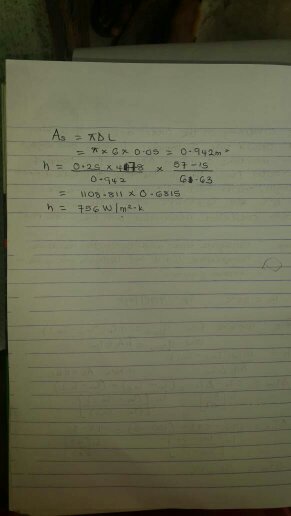 As = πDL
= π × 6 × 0.05 = 0.942m²
h = 0.25 × 4178 / 0.942 × 57-15 / 61.63
= 1108.811 × 0.6815
h = 756 W/m²-k